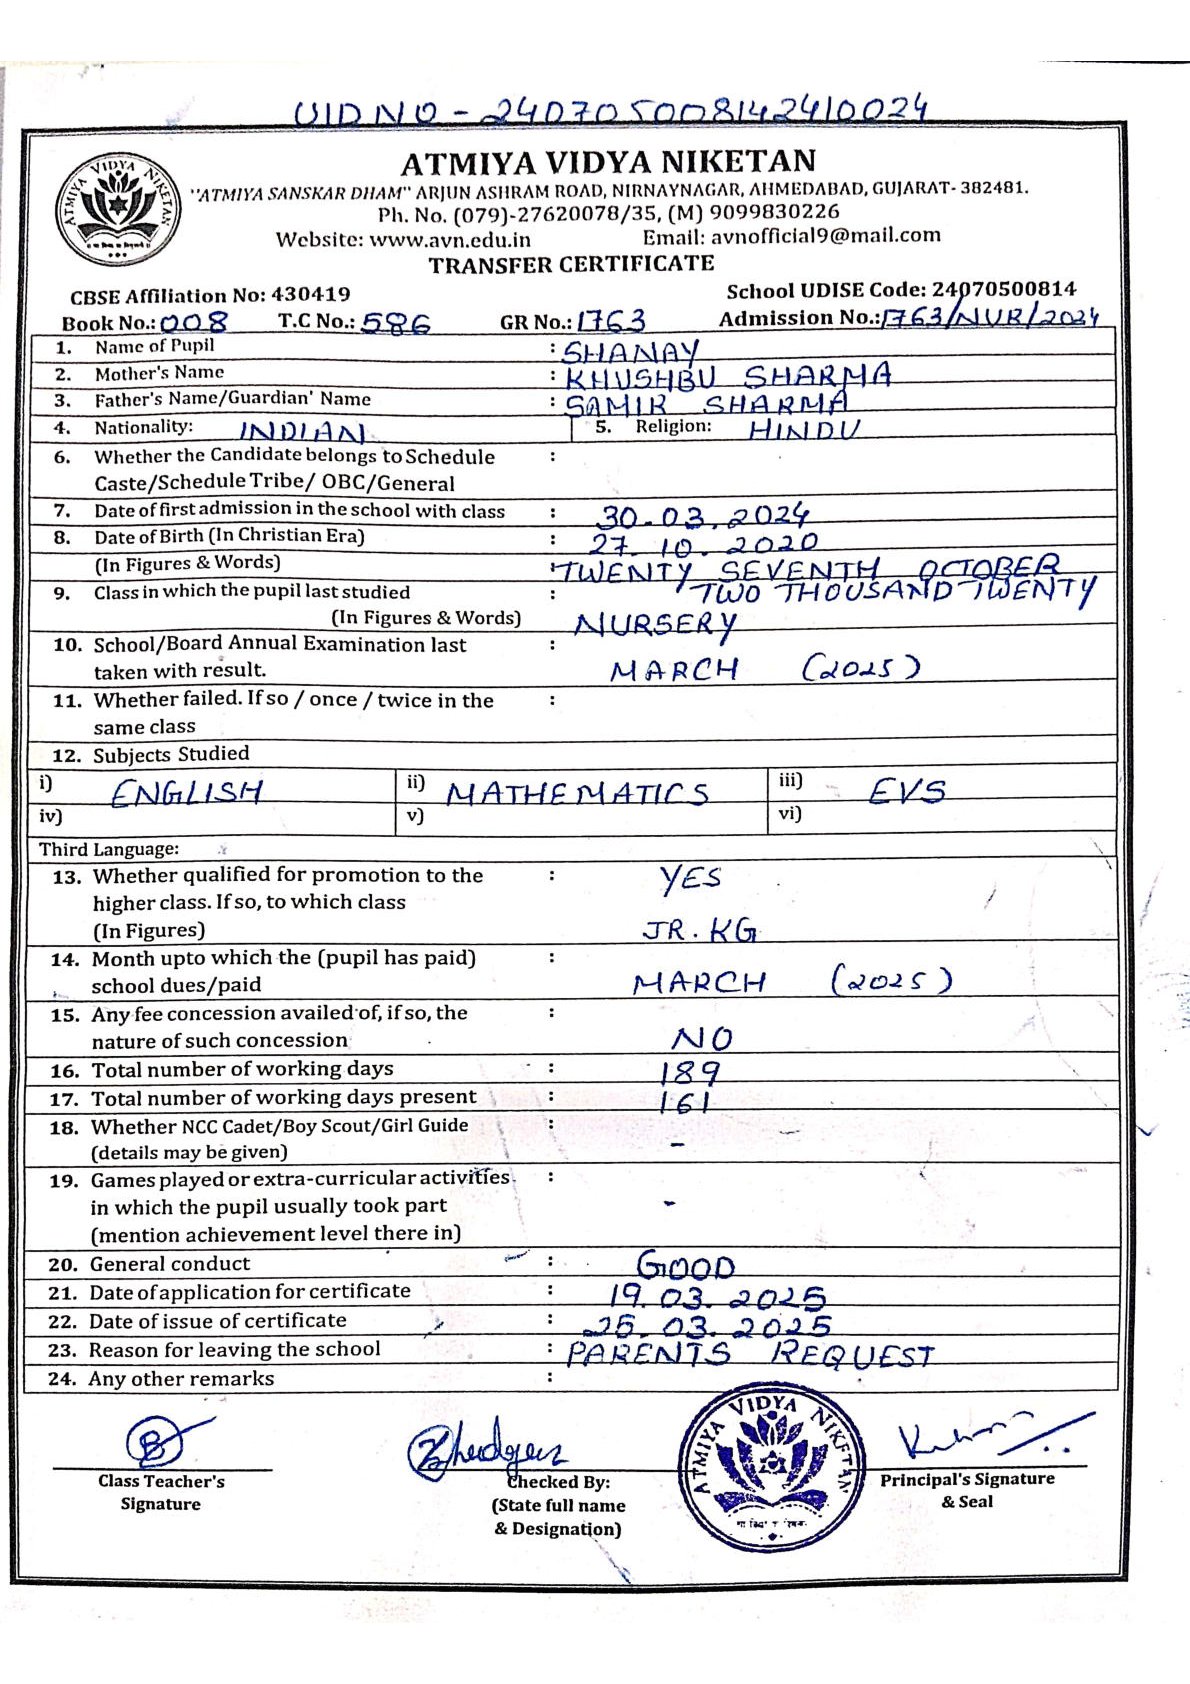 UID NO - 240705008142410024
ATMIYA VIDYA NIKETAN
"ATMIYA SANSKAR DHAM" ARJUN ASHRAM ROAD, NIRNAYNAGAR, AHMEDABAD, GUJARAT- 382481.
Ph. No. (079)-27620078/35, (M) 9099830226
Website: www.avn.edu.in Email: avnofficial9@mail.com
TRANSFER CERTIFICATE
CBSE Affiliation No: 430419 School UDISE Code: 24070500814
Book No.: 008 T.C No.: 586 GR No.: 1763 Admission No.: 1763/NUR/2024
1. Name of Pupil : SHANAY
2. Mother's Name : KHUSHBU SHARMA
3. Father's Name/Guardian' Name : SAMIR SHARMA
4. Nationality: INDIAN 5. Religion: HINDU
6. Whether the Candidate belongs to Schedule :
Caste/Schedule Tribe/ OBC/General
7. Date of first admission in the school with class : 30.03.2024
8. Date of Birth (In Christian Era) : 27.10.2020
(In Figures & Words) : TWENTY SEVENTH OCTOBER
9. Class in which the pupil last studied : TWO THOUSAND TWENTY
(In Figures & Words) NURSERY
10. School/Board Annual Examination last :
taken with result. MARCH (2025)
11. Whether failed. If so / once / twice in the :
same class
12. Subjects Studied
i) ENGLISH ii) MATHEMATICS iii) EVS
iv) v) vi)
Third Language:
13. Whether qualified for promotion to the : YES
higher class. If so, to which class
(In Figures) JR. KG
14. Month upto which the (pupil has paid) :
school dues/paid MARCH (2025)
15. Any fee concession availed of, if so, the :
nature of such concession NO
16. Total number of working days : 189
17. Total number of working days present : 161
18. Whether NCC Cadet/Boy Scout/Girl Guide :
(details may be given) -
19. Games played or extra-curricular activities :
in which the pupil usually took part -
(mention achievement level there in)
20. General conduct : GOOD
21. Date of application for certificate : 19.03.2025
22. Date of issue of certificate : 25.03.2025
23. Reason for leaving the school : PARENTS REQUEST
24. Any other remarks :
Class Teacher's
Signature
Checked By:
(State full name
& Designation)
ATMIYA VIDYA NIKETAN
Principal's Signature
& Seal